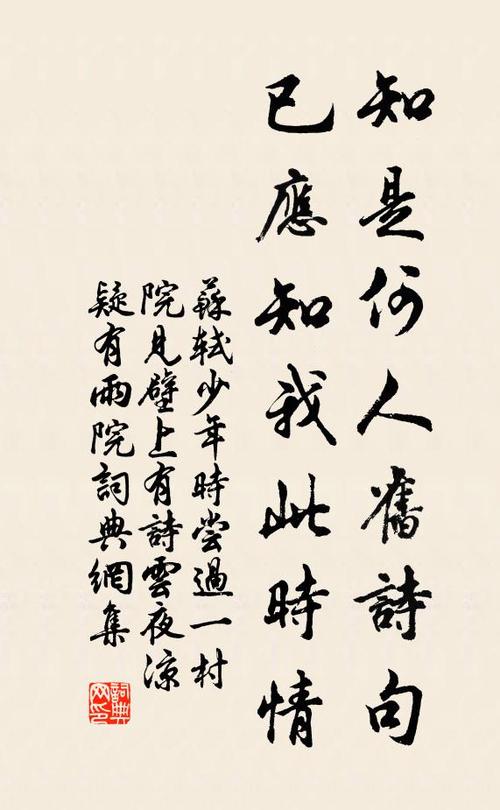 知是何人舊詩句
已應知我此時情
蘇軾少年時嘗過一村
院見壁上有詩雲夜涼
疑有雨院詞典網集
詞典
网印